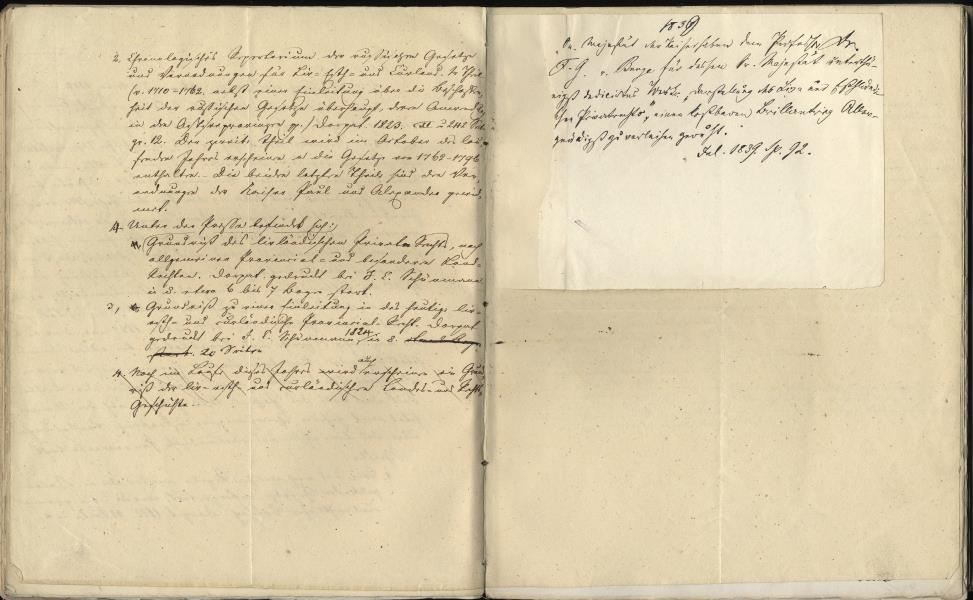 2. Chronologisches Repertorium der russischen Gesetze
und Verordnungen für Liv- Esth- und Curland. 1r Theil
(v. 1710-1762. nebst einer Einleitung über die Beschaffen-
heit der russischen Gesetze überhaupt, deren
in den Ostseeprovinzen pp.) Dorpat. 1823. u 242 Seit.
gr. 12. Der zweite Theil wird im October des lau-
fenden Jahres erscheinen u die Gesetze von 1762-1796
enthalten. - Die beiden letzten Theile sind den Ver-
ordnungen der Kaiser Paul und Alexander gewid-
met.
4. Unter der Presse befindet sich:
Grundriß des livländischen Privat Rechts, nach
allgemeinen Provincial- und besonderen Land-
Rechten. Dorpat gedruckt bei J. C. Schünmann
in 8. etwa 6 bis 7 Bogen stark.
3, Grundriß zu einer Einleitung in das heutige liv-
esth- und curländische Provincial-Recht. Dorpat
gedruckt bei J. C. Schünmann 1824. in 8.
stark. 20 Seiten
4. Noch im Laufe dieses Jahres wird auch erscheinen ein Grund-
riß der liv- esth- und curländischen Landes- und Rechts-
Geschichte.
1839
Se. Majestät der Kaiser haben dem Professor Dr.
F. G. v. Bunge für dessen Sr. Majestät unterthä-
nigst dedicirtes Werk: "Darstellung des Liv- und Esthländi-
schen Privatrechts", einen kostbaren Brillantring Aller-
gnädigst zu verleihen geruht."
Inl. 1839. Sp. 92.